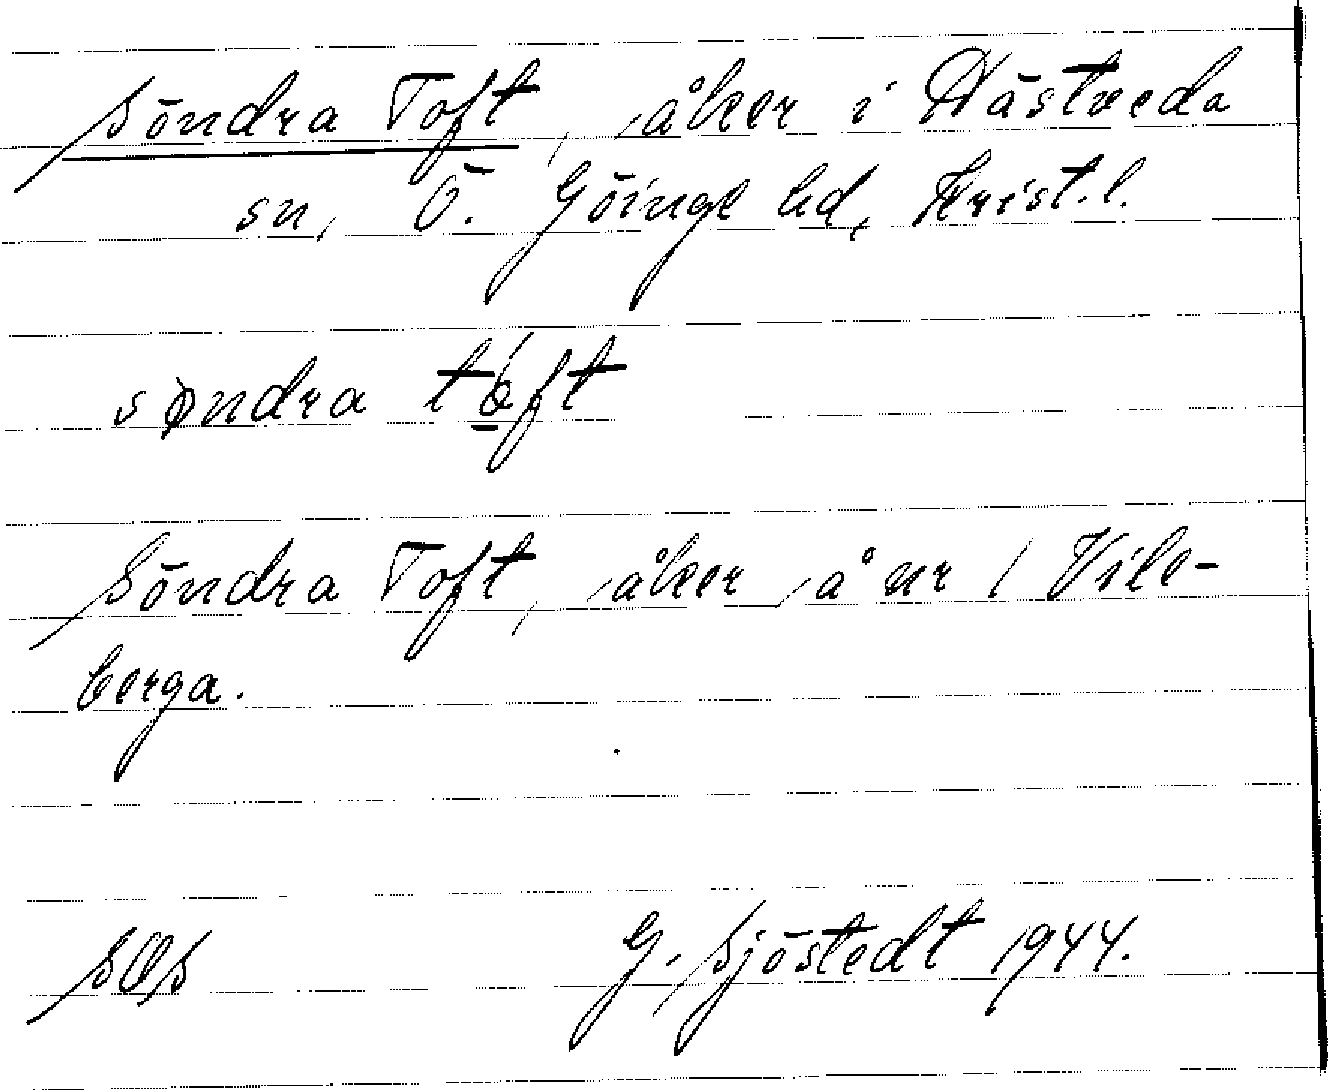 Söndra Toft, åker i Hästveda
sn, Ö. Göinge hd, Krist. l.
søndra tóft
Söndra Toft, åker å nr 1 Vile-
berga.
SOS G. Sjöstedt 1944.